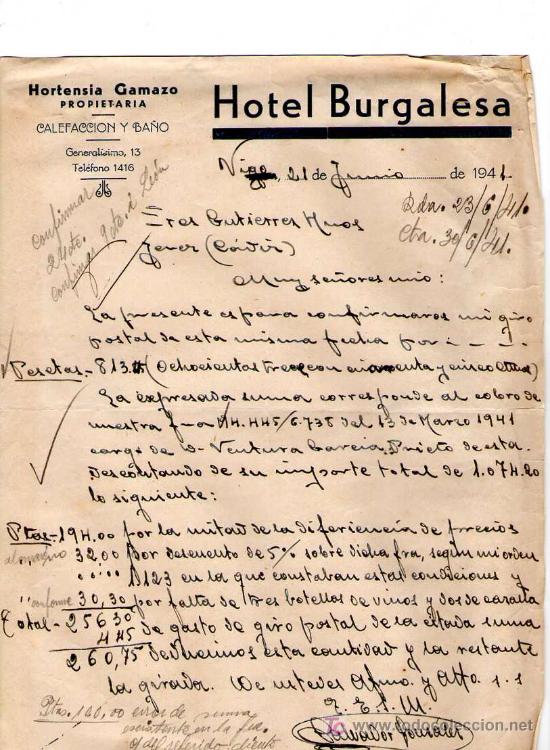 Hortensia Gamazo
PROPIETARIA
CALEFACCION Y BAÑO
Generalísimo, 13
Teléfono 1416
Hotel Burgalesa
Vigo, 21 de Junio de 1941
Rda. 23/6/41.
Cta. 30/6/41.
confirmar
Sres Gutierres Hnos
Jerez (Cádiz)
Muy señores mio:
La presente es para confirmaros mi giro
postal de esta misma fecha por - - - -
Pesetas - 813. (Ochocientas trece con cincuenta y cinco)
La expresada suma corresponde al cobro de
nuestra fra 14.445/6.738 del 13 de Marzo 1941
cargo de D- Ventura Garcia Prieto de esta.
Descontando de su importe total de 1.074.20
lo siguiente:
Ptas - 194.00 por la mitad de la diferiencia de precios
32.00 por descuento de 5% sobre dicha fra, según mi orden
D123 en la que constaban estas condiciones y
conforme 30,30 por falta de tres botellas de vinos y dos de
Total - 256 30
4 45 de gasto de giro postal de la citada suma
260,75 deducimos esta cantidad y la restante
la girada. De ustedes Afmo. y Atto. s.s
q. E. S. M.
Salvador Gonzalez
Ptas. 100.00 error de suma
en la fra.
del referido cliente
todocoleccion.net